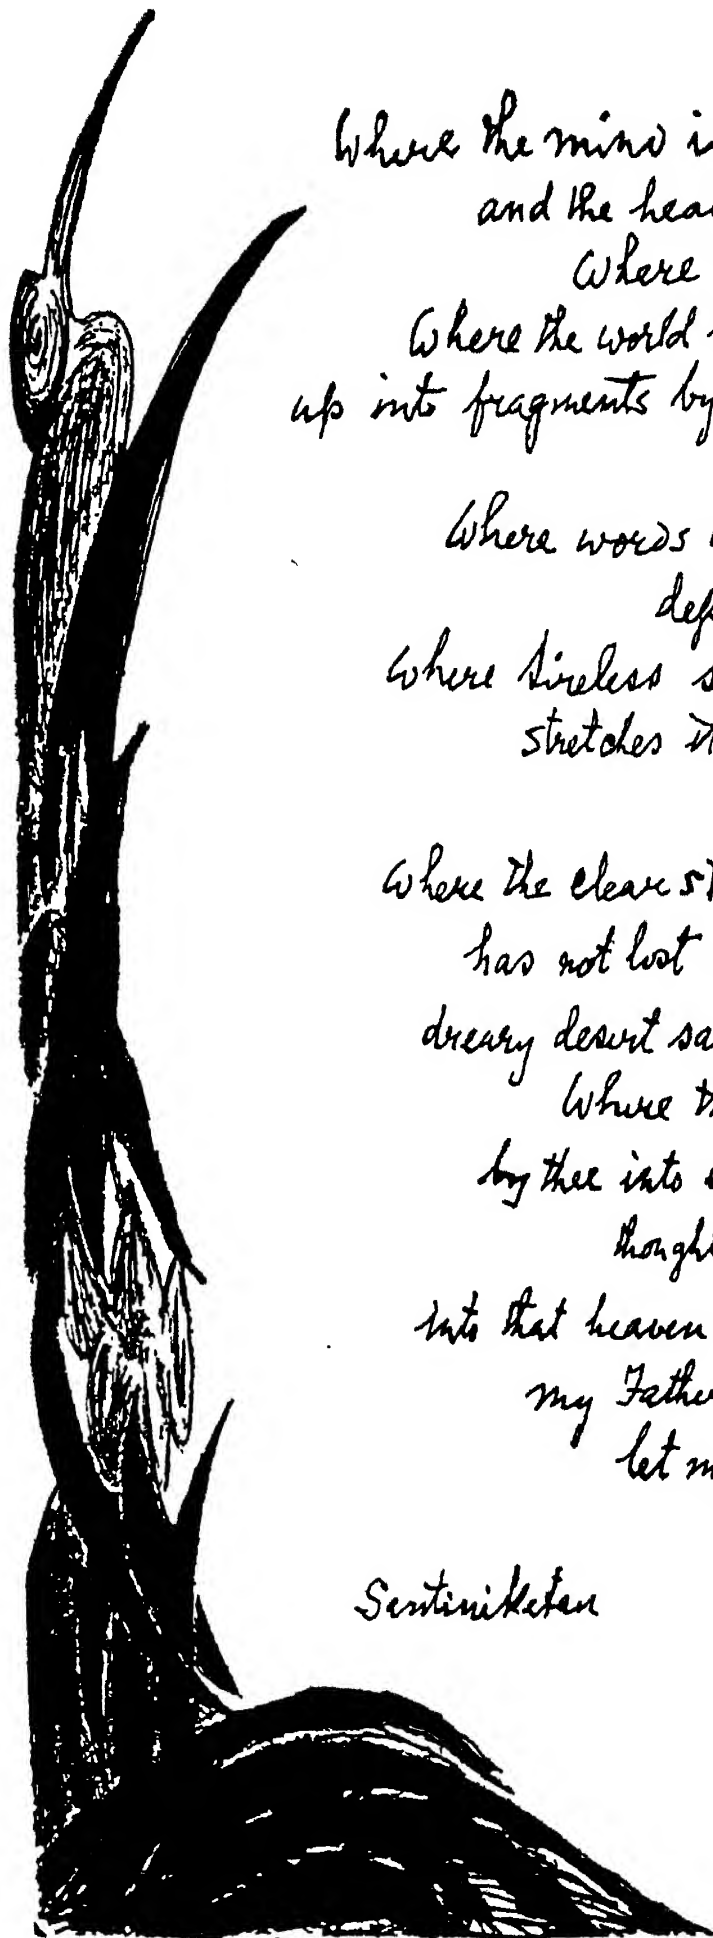 Where the mind is
and the hea
Where
Where the world
up into fragments by
Where words
de
Where tireless s
stretches it
Where the clear st
has not lost
dreary desert sa
Where th
by thee into
though
into that heaven
my Father
let m
Santiniketan